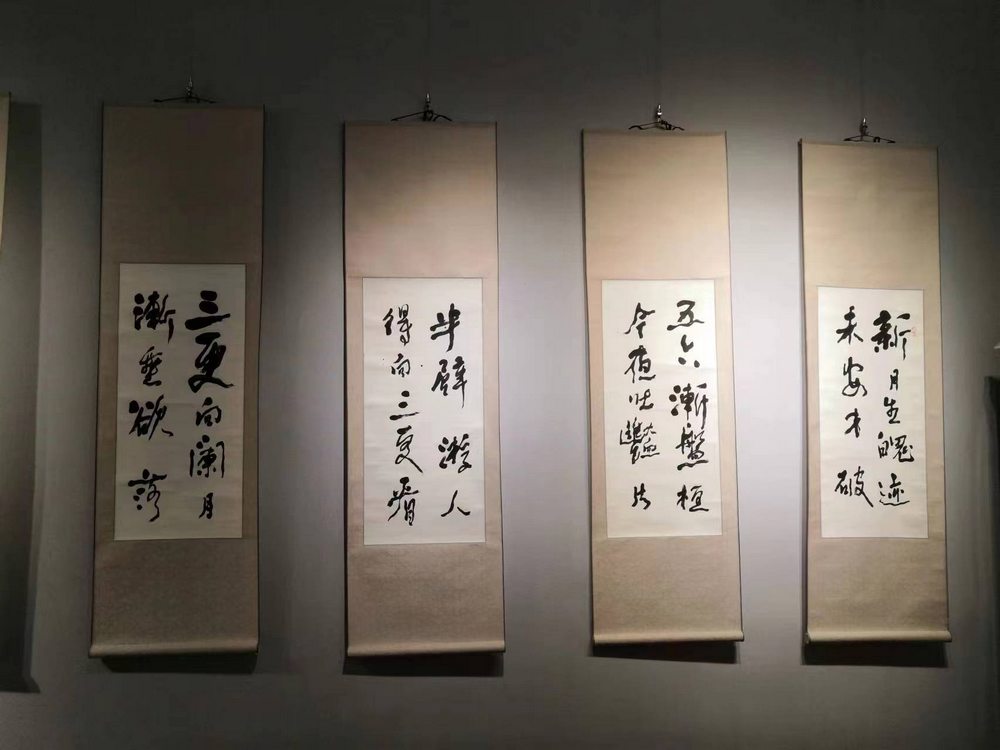 新月生魄迹
未安才破
五六漸盤桓
今夜吐豔如
半璧游人
得向三更看
三更向闌月
漸垂欲落